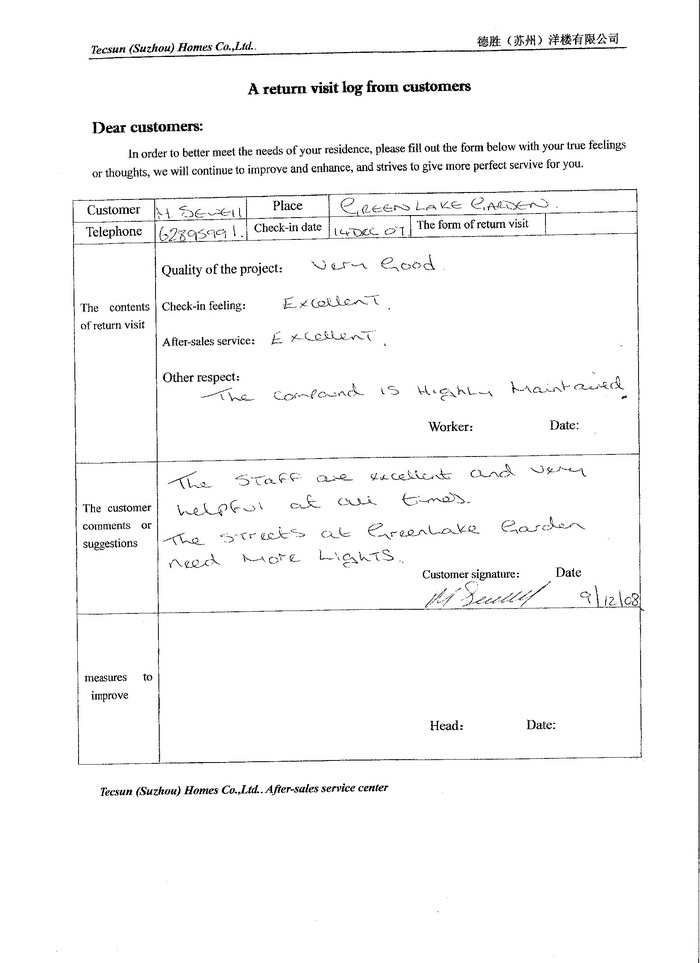 Tecsun (Suzhou) Homes Co.,Ltd.. 德胜（苏州）洋楼有限公司
A return visit log from customers
Dear customers:
In order to better meet the needs of your residence, please fill out the form below with your true feelings
or thoughts, we will continue to improve and enhance, and strives to give more perfect servive for you.
Customer M. SEWEll Place GREEN LAKE GARDEN.
Telephone 62895991. Check-in date 14 DEC 07 The form of return visit
Quality of the project: Very Good
The contents Check-in feeling: Excellent.
of return visit
After-sales service: Excellent.
Other respect:
The compound is Highly Maintained.
Worker: Date:
The STaff are excellent and very
The customer helpful at all times.
comments or The streets at Greenlake Garden
suggestions
need More Lights.
Customer signature: Date
M Sewell 9/12/08
measures to
improve
Head: Date:
Tecsun (Suzhou) Homes Co.,Ltd.. After-sales service center